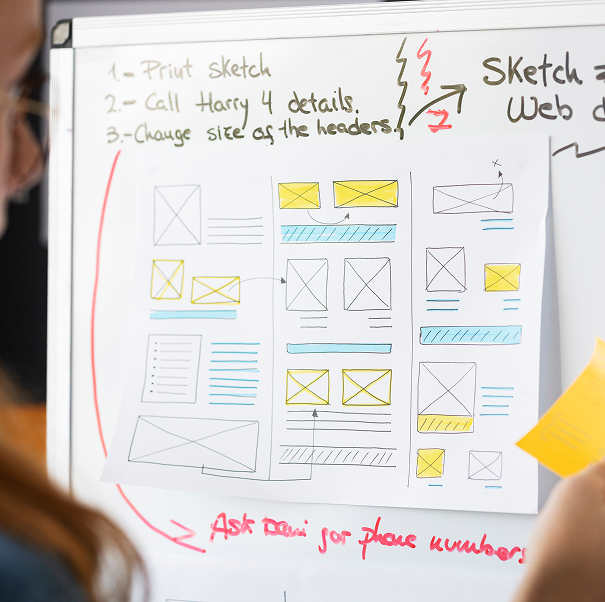 1.- Print sketch
2.- Call Harry 4 details.
3.- Change size of the headers.
Sketch =
Web d
Ask for phone numbers